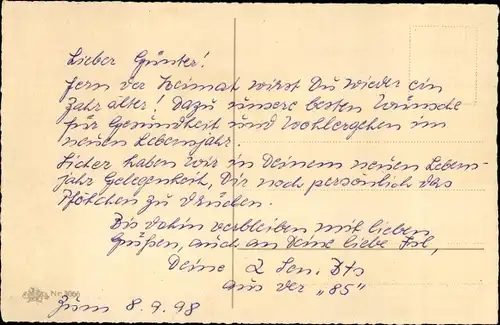 Lieber Günter!
fern der Heimat wirst Du wieder ein
Jahr älter! Dazu unsere besten Wünsche
für Gesundheit und Wohlergehen im
neuen Lebensjahr.
Sicher haben wir in Deinem neuen Lebens-
jahr Gelegenheit, Dir noch persönlich das
Pfötchen zu drücken.
Bis dahin verbleiben mit lieben
Grüßen, auch an Deine liebe
Deine 2
aus der „85"
Zum 8.9.98
Nr.